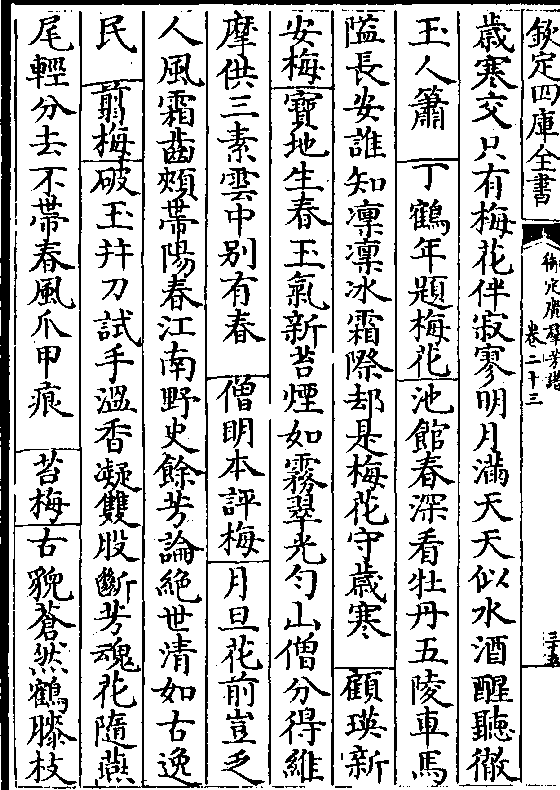 欽定四庫全書
御定廣群芳譜
卷二十三
三十五
歲寒交只有梅花伴寂寥明月滿天天似水酒醒聽徹
玉人簫　丁鶴年題梅花池館春深看牡丹五陵車馬
隘長安誰知凜凜冰霜際却是梅花守歲寒　顧瑛新
安梅寶地生春玉氣新苔煙如霧翠光勻山僧分得維
摩供三素雲中別有春　僧明本評梅月旦花前豈乏
人風霜齒頰帶陽春江南野史餘芳論絕世清如古逸
民　剪梅破玉并刀試手溫香凝雙股斷芳魂花隨燕
尾輕分去不帶春風爪甲痕　苔梅古貌蒼然鶴膝枝